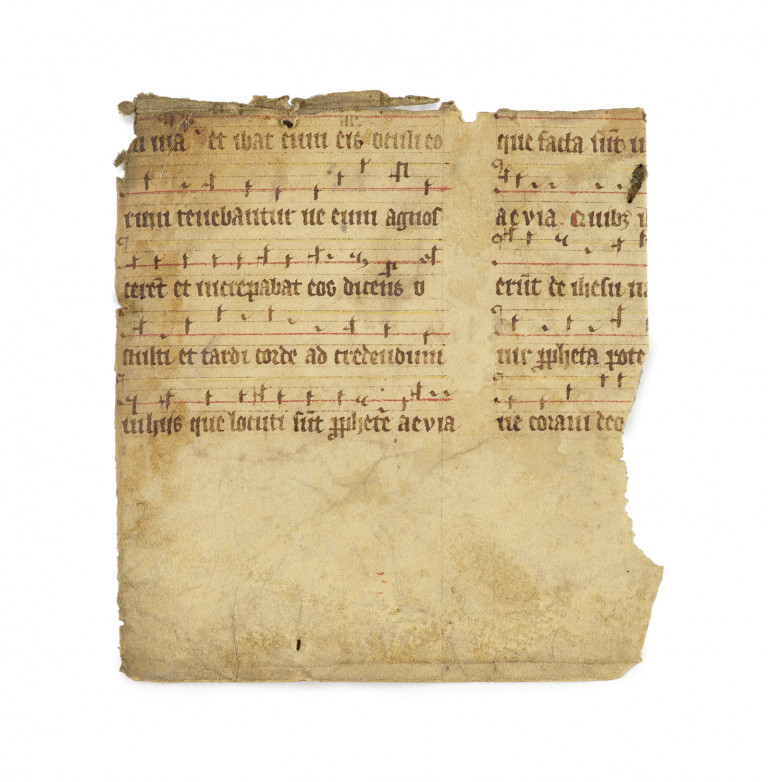 et ibat cum eis oculi eo
rum tenebantur ne eum agnos
cerēt et increpabat eos dicens o
stulti et tardi corde ad credendum
in hijs que locuti sūt ꝓphete aevia
que facta sūt
aevia Quibꝫ
erūt de ihesu
uir ꝓpheta pote
ne coram deo